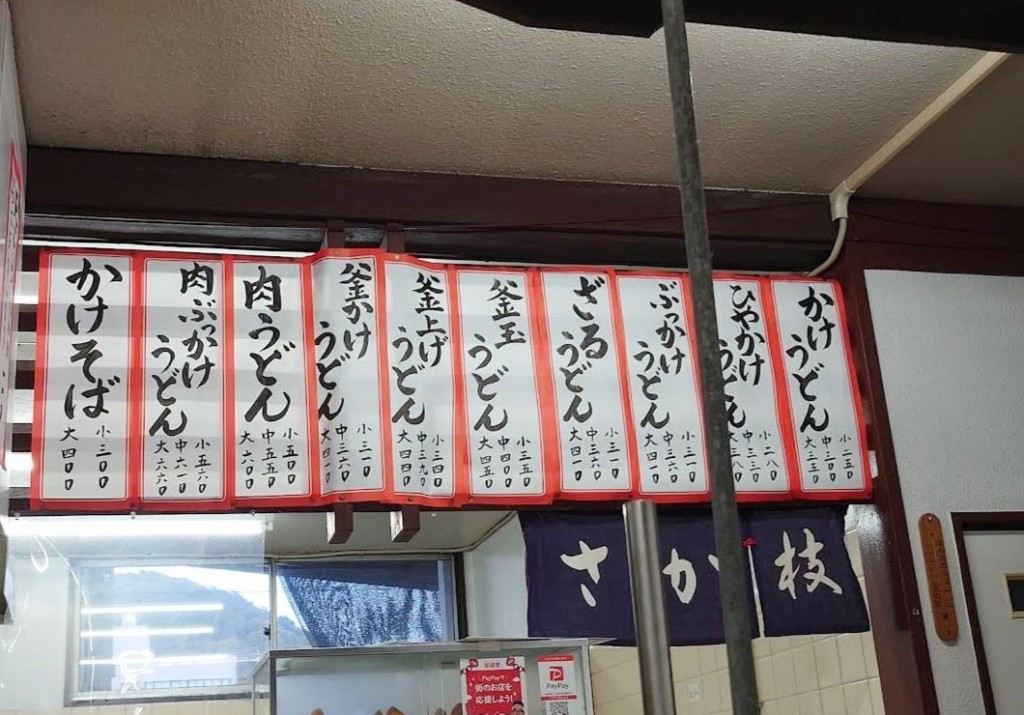 かけうどん
小二五〇
中三〇〇
大三五〇
ひやかけ
うどん
小二八〇
中三三〇
大三八〇
ぶっかけ
うどん
小三一〇
中三六〇
大四一〇
ざる
うどん
小三一〇
中三六〇
大四一〇
釜玉
うどん
小三五〇
中四〇〇
大四五〇
釜上げ
うどん
小三四〇
中三九〇
大四四〇
釜かけ
うどん
小三一〇
中三六〇
大四一〇
肉うどん
小五〇〇
中五五〇
大六〇〇
肉ぶっかけ
うどん
小五六〇
中六一〇
大六六〇
かけそば
小三〇〇
大四〇〇
さか枝
PayPayで
街のお店を
応援しよう!
PayPay